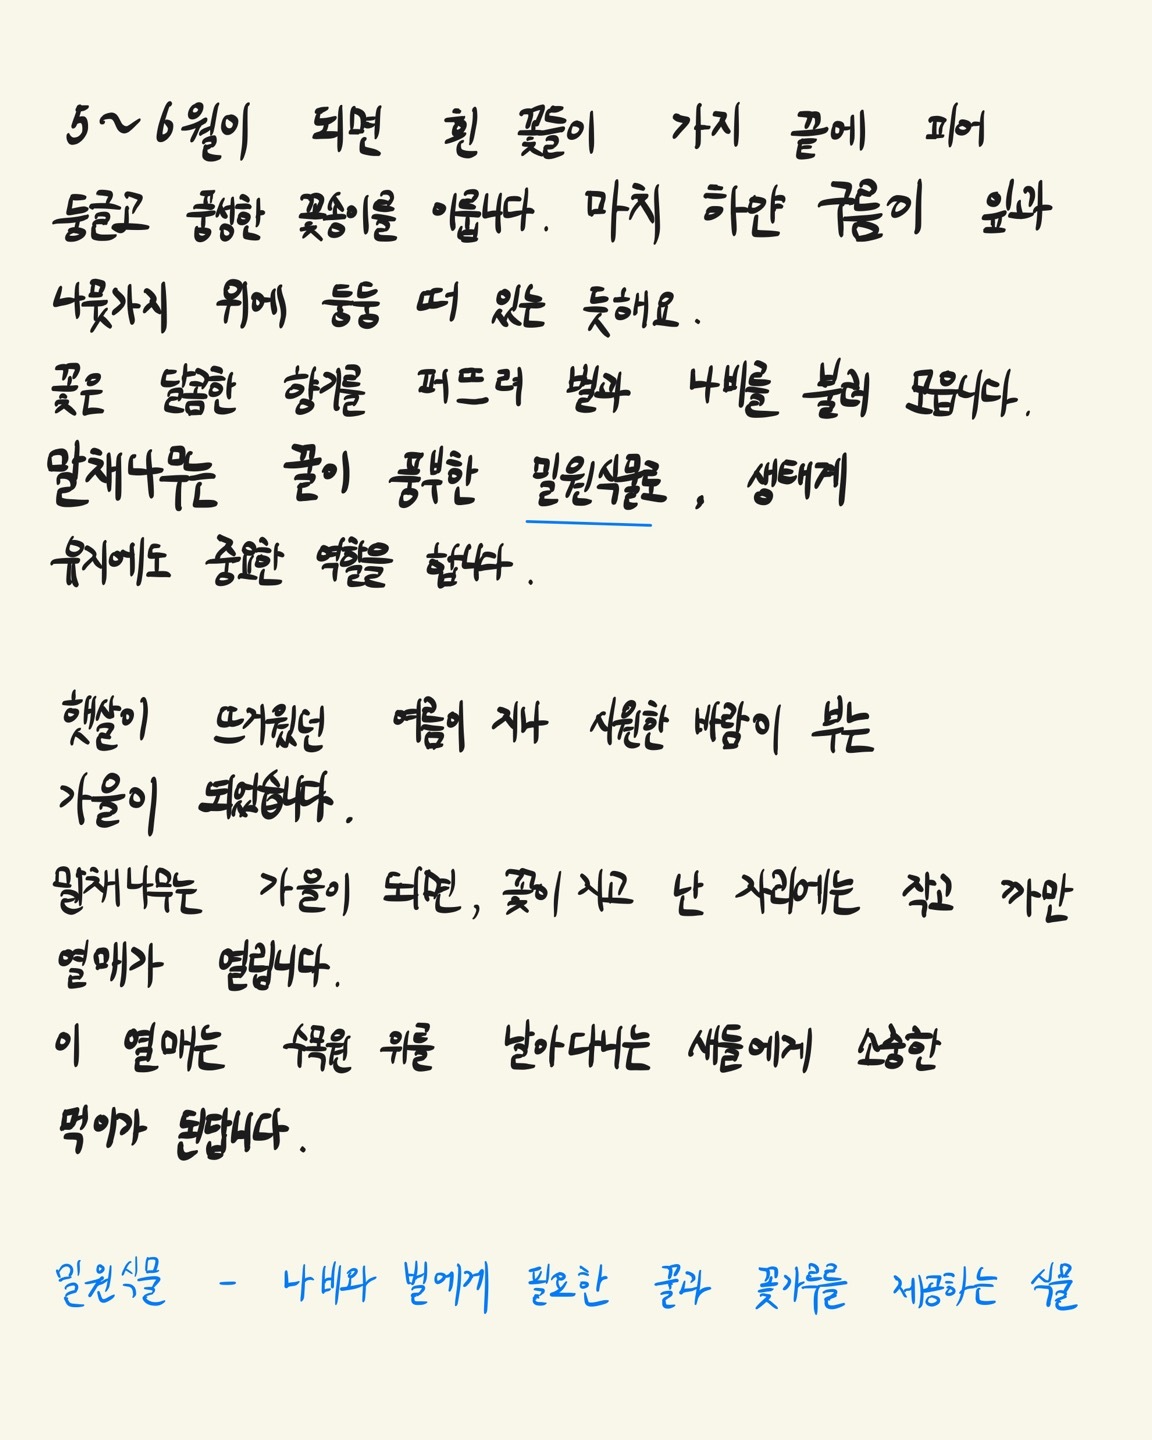 5~6월이 되면 흰 꽃들이 가지 끝에 피어
둥글고 풍성한 꽃송이를 이룹니다. 마치 하얀 구름이 잎과
나뭇가지 위에 둥둥 떠 있는 듯해요.
꽃은 달콤한 향기를 퍼뜨려 벌과 나비를 불러 모읍니다.
말채나무는 꿀이 풍부한 밀원식물로, 생태계
유지에도 중요한 역할을 합니다.
햇살이 뜨거웠던 여름이 지나 시원한 바람이 부는
가을이 되었습니다.
말채나무는 가을이 되면, 꽃이 지고 난 자리에는 작고 까만
열매가 열립니다.
이 열매는 수목원 위를 날아다니는 새들에게 소중한
먹이가 된답니다.
밀원식물 - 나비와 벌에게 필요한 꿀과 꽃가루를 제공하는 식물